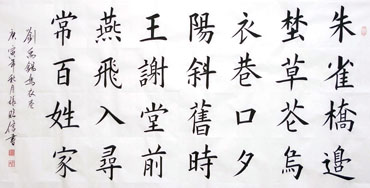 朱雀橋邊
埜草芲烏
衣巷口夕
陽斜舊時
王謝堂前
燕飛入尋
常百姓家
劉禹錫烏衣巷
庚寅年秋月張書